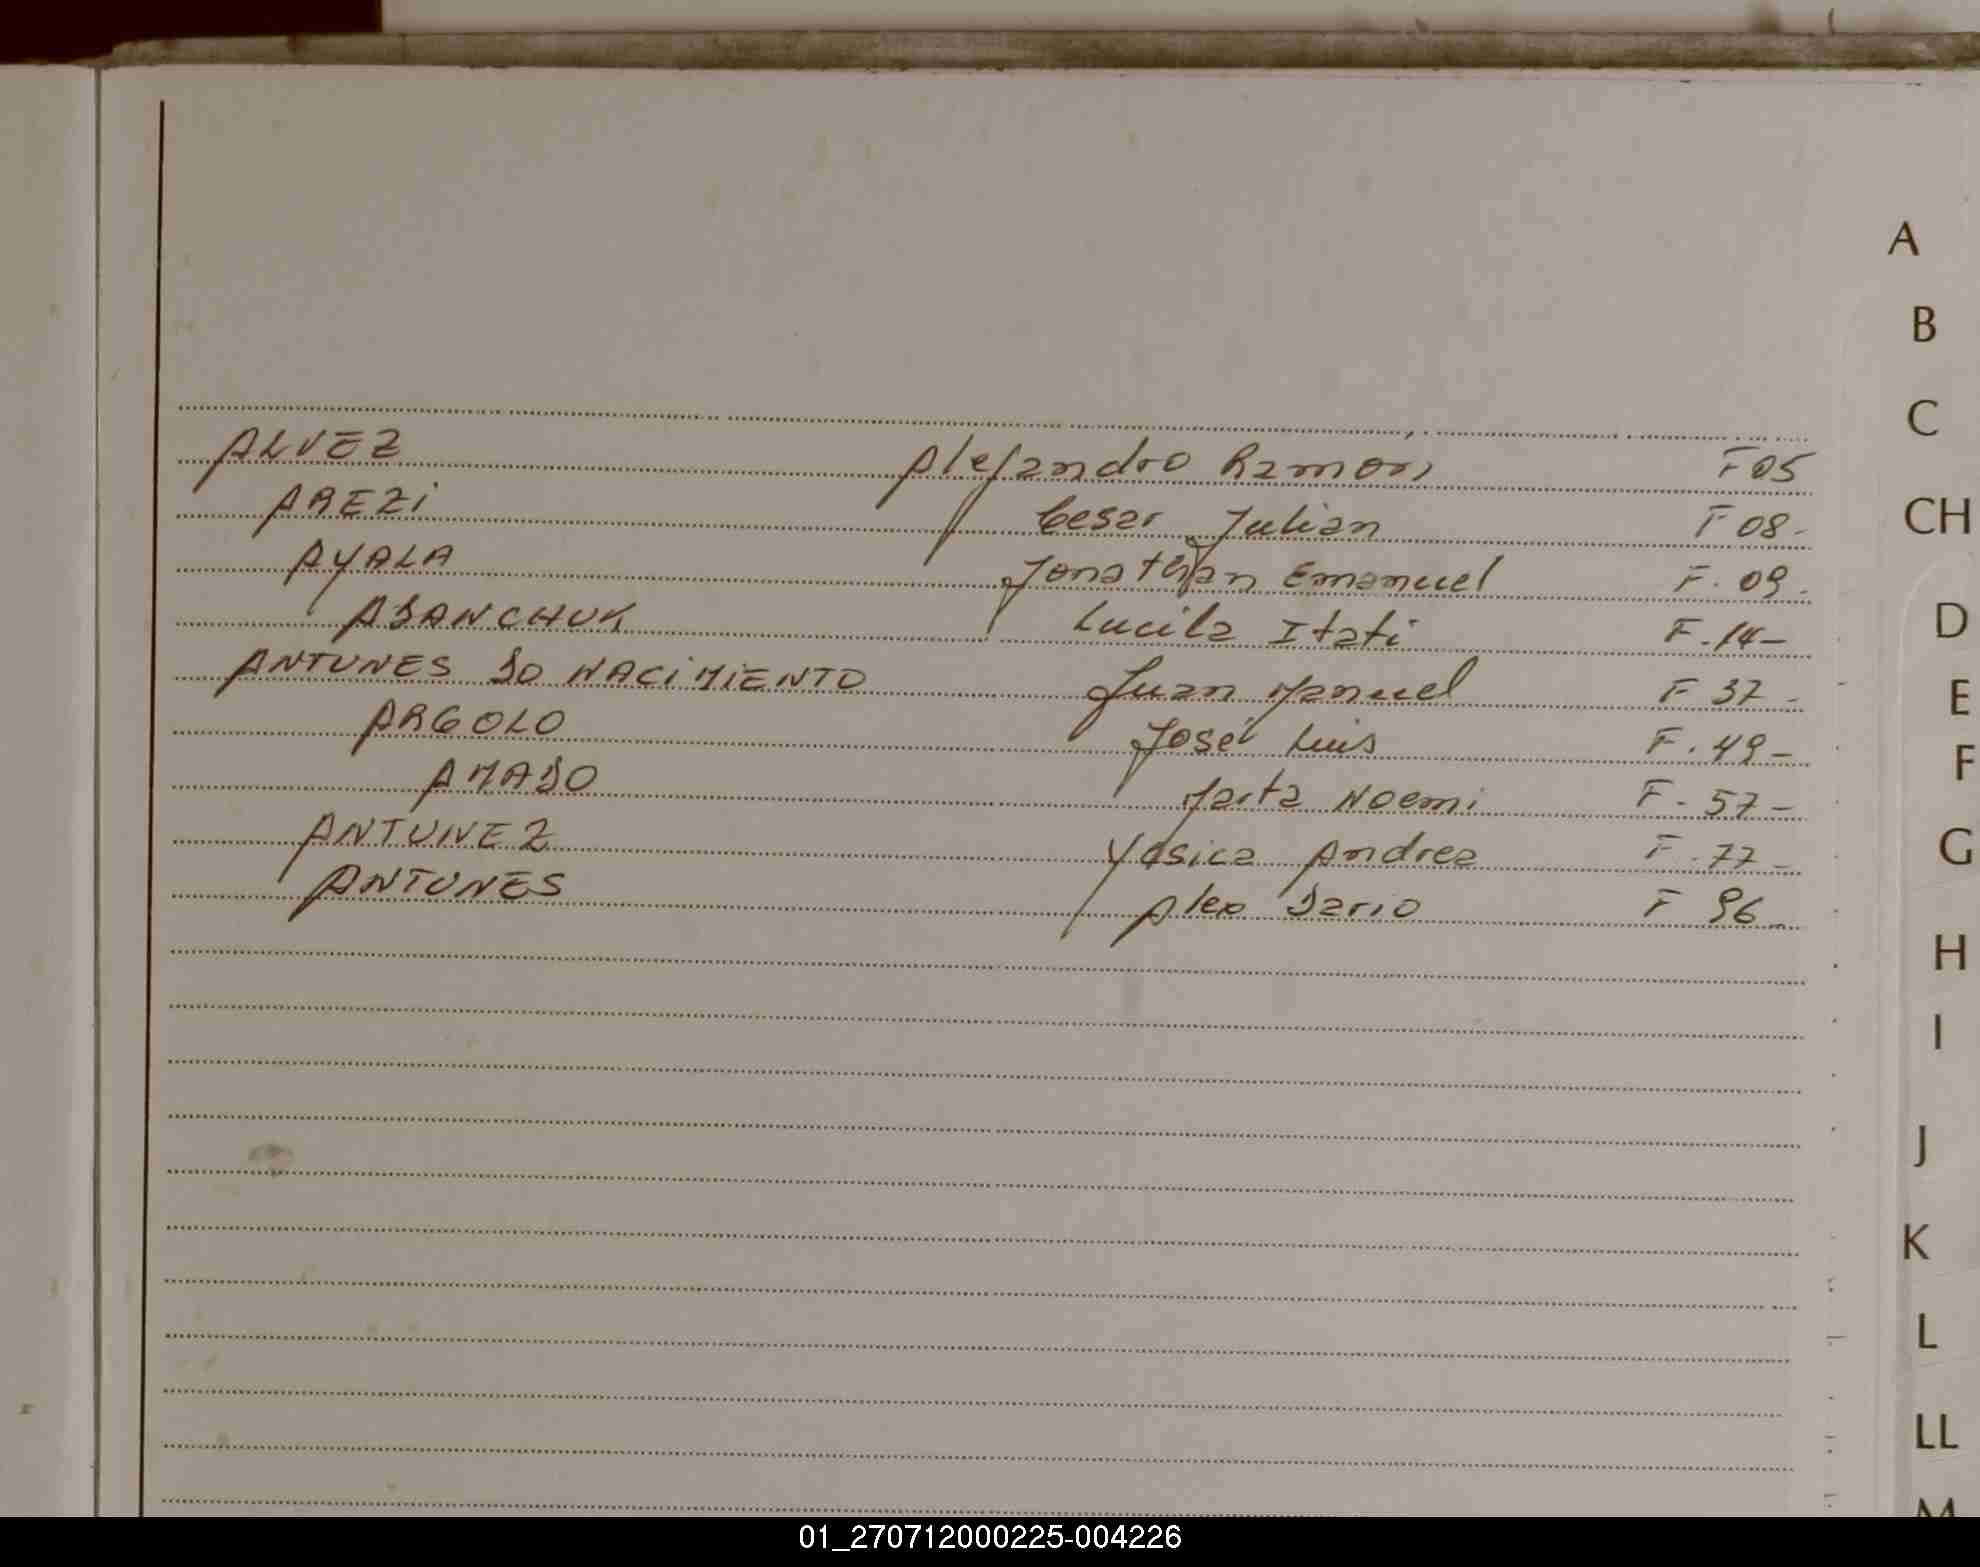 ALVEZ Alejandro Ramon F 05
AREZI Cesar Julian F 08-
AYALA Jonathan Emanuel F. 09.
ADANCHUK Lucila Itati F. 14-
ANTUNES DO NACIMIENTO Juan Manuel F 37-
ARGOLO José Luis F. 49-
AMADO Marta Noemi F. 57-
ANTUNEZ Yesica Andrea F. 77-
ANTUNES Alex Dario F 96-
A
B
C
CH
D
E
F
G
H
I
J
K
L
LL
M
01_270712000225-004226